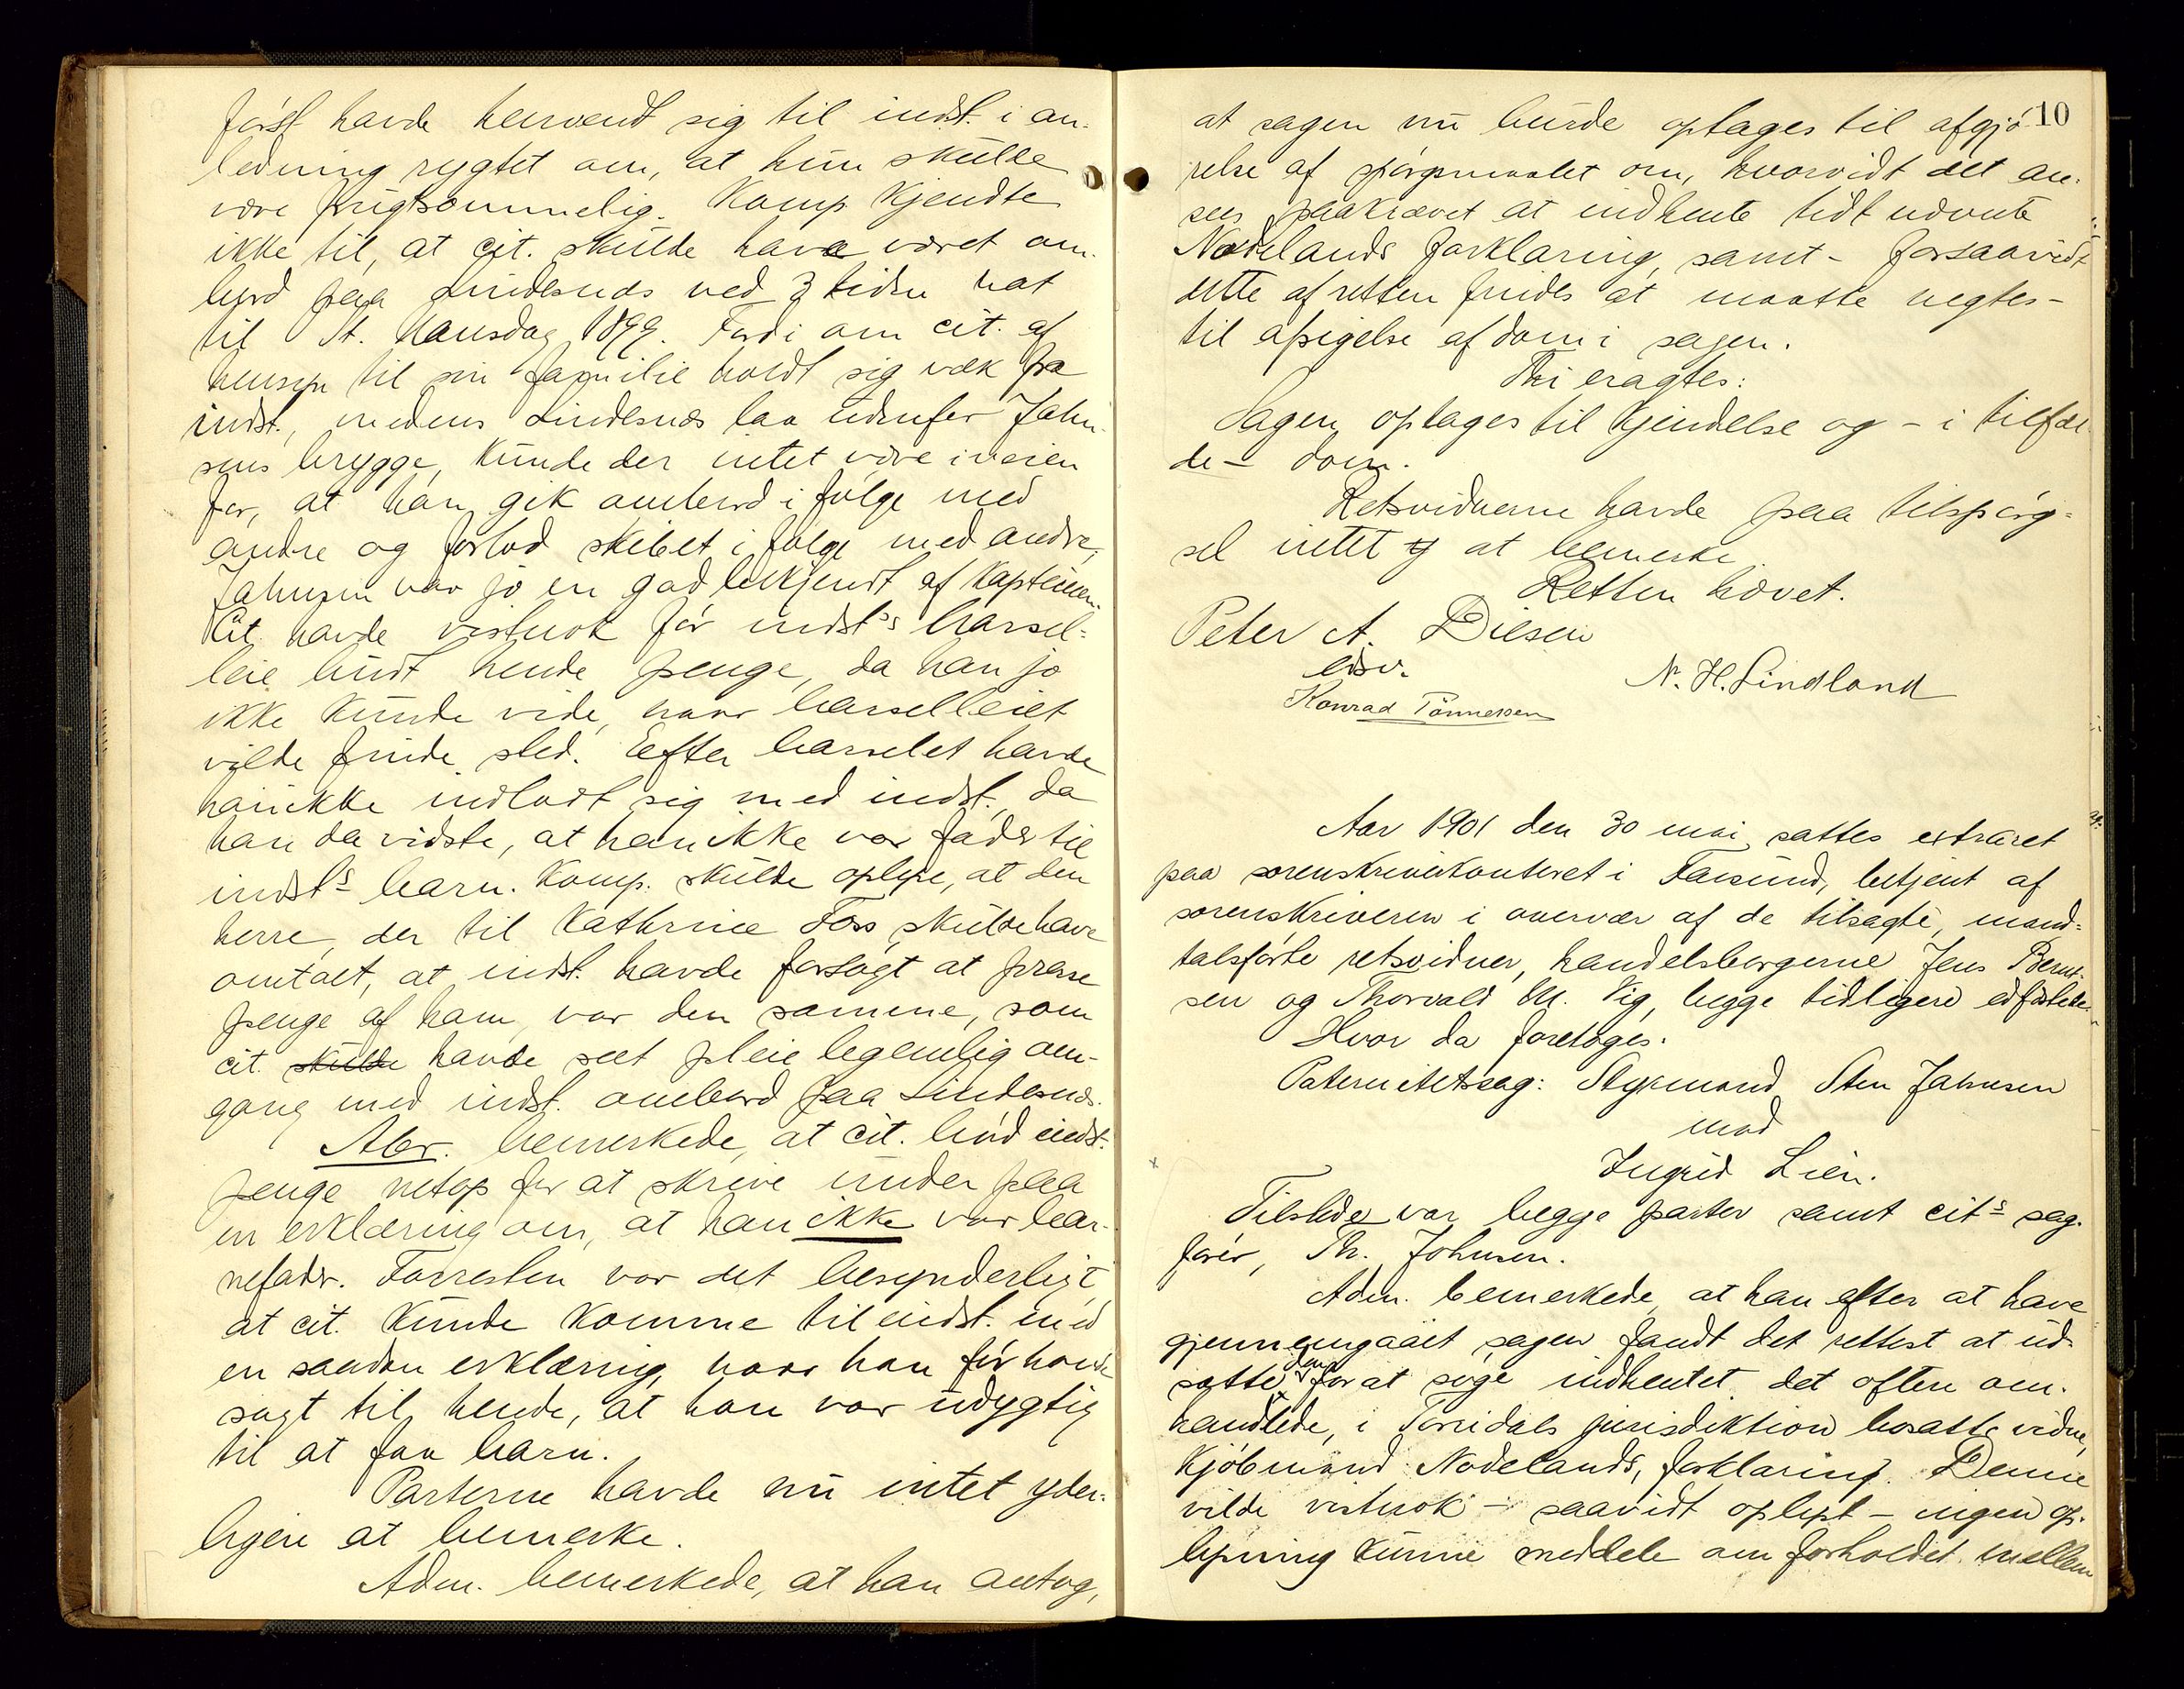 først havde henvendt sig til indst. i an-
ledning rygtet om, at hun skulde
være frugtsommelig. Komp. kjendte
ikke til, at cit. skulde have været om-
bord paa Lindesnæs ved 3 tiden nat
til St. Hansdag 1899. Fordi om cit. af
hensyn til sin familie holdt sig væk fra
indst., medens Lindesnæs laa udenfor Jahn-
sens brygge, kunde der intet være i veien
for, at han gik ombord i følge med
andre og forlod skibet i følge med andre;
Jahnsen var jo en god bekjendt af kapteinen.
Cit. havde vistnok før indst's barsel-
leie budt hende penge, da han jo
ikke kunde vide, naar barselleiet
vilde finde sted. Eefter barselet havde
han ikke indladt sig med indst., da
han da vidste, at han ikke var fader til
indst's barn. Komp. skulde oplyse, at den
herre, der til Kathrine Foss skulde have
omtalt, at indst. havde forsøgt at presse
penge af ham, var den samme, som
cit. skulde havde seet pleie legemlig om-
gang med indst. ombord paa Lindesnæs.
Abr. bemerkede, at cit. bød indst.
penge netop for at skrive under paa
en erklæring om, at han ikke var bar-
nefader. Forresten var det besynderligt,
at cit. kunde komme til indst. med
en saadan erklæring, naar han før havde
sagt til hende, at han var udygtig
til at faa barn.
Parterne havde nu intet yder-
ligere at bemerke.
Adm. bemerkede, at han antog,
10
at sagen nu burde optages til afgjø-
relse af spørgsmaalet om, hvorvidt det an-
sees paakrævet at indhente tidt nævnte
Nodelands forklaring, samt - forsaavidt
dette af retten findes at maatte negtes -
til afsigelse af dom i sagen.
Thi eragtes:
Sagen optages til kjendelse og - i tilfæl-
de - dom.
Retsvidnerne havde paa tilspørg-
sel intet at bemerke.
Retten hævet.
Peter A. Diesen
edsv.
N. H. Lindland
Konrad Tønnessen
Aar 1901 den 30 mai sattes extraret
paa sorenskriverkontoret i Farsund, betjent af
sorenskriveren i overvær af de tilsagte, mand-
talsførte retsvidner, handelsborgerne Jens Bernt-
sen og Thorvald M. Vig, begge tidligere edfæstede.
Hvor da foretoges:
Paternitetssag: Styrmand Sten Jahnsen
mod
Ingrid Lien.
Tilstede var begge parter samt cit's sag-
fører, Th. Johnsen.
Adm. bemerkede, at han efter at have
gjennemgaaet sagen fandt det rettest at ud-
sætte den for at søge indhentet det oftere om-
handlede, i Torridals jurisdiktion bosatte vidne,
kjøbmand Nodelands, forklaring. Denne
vilde vistnok - saavidt oplyst - ingen op-
lysning kunne meddele om forholdet mellem